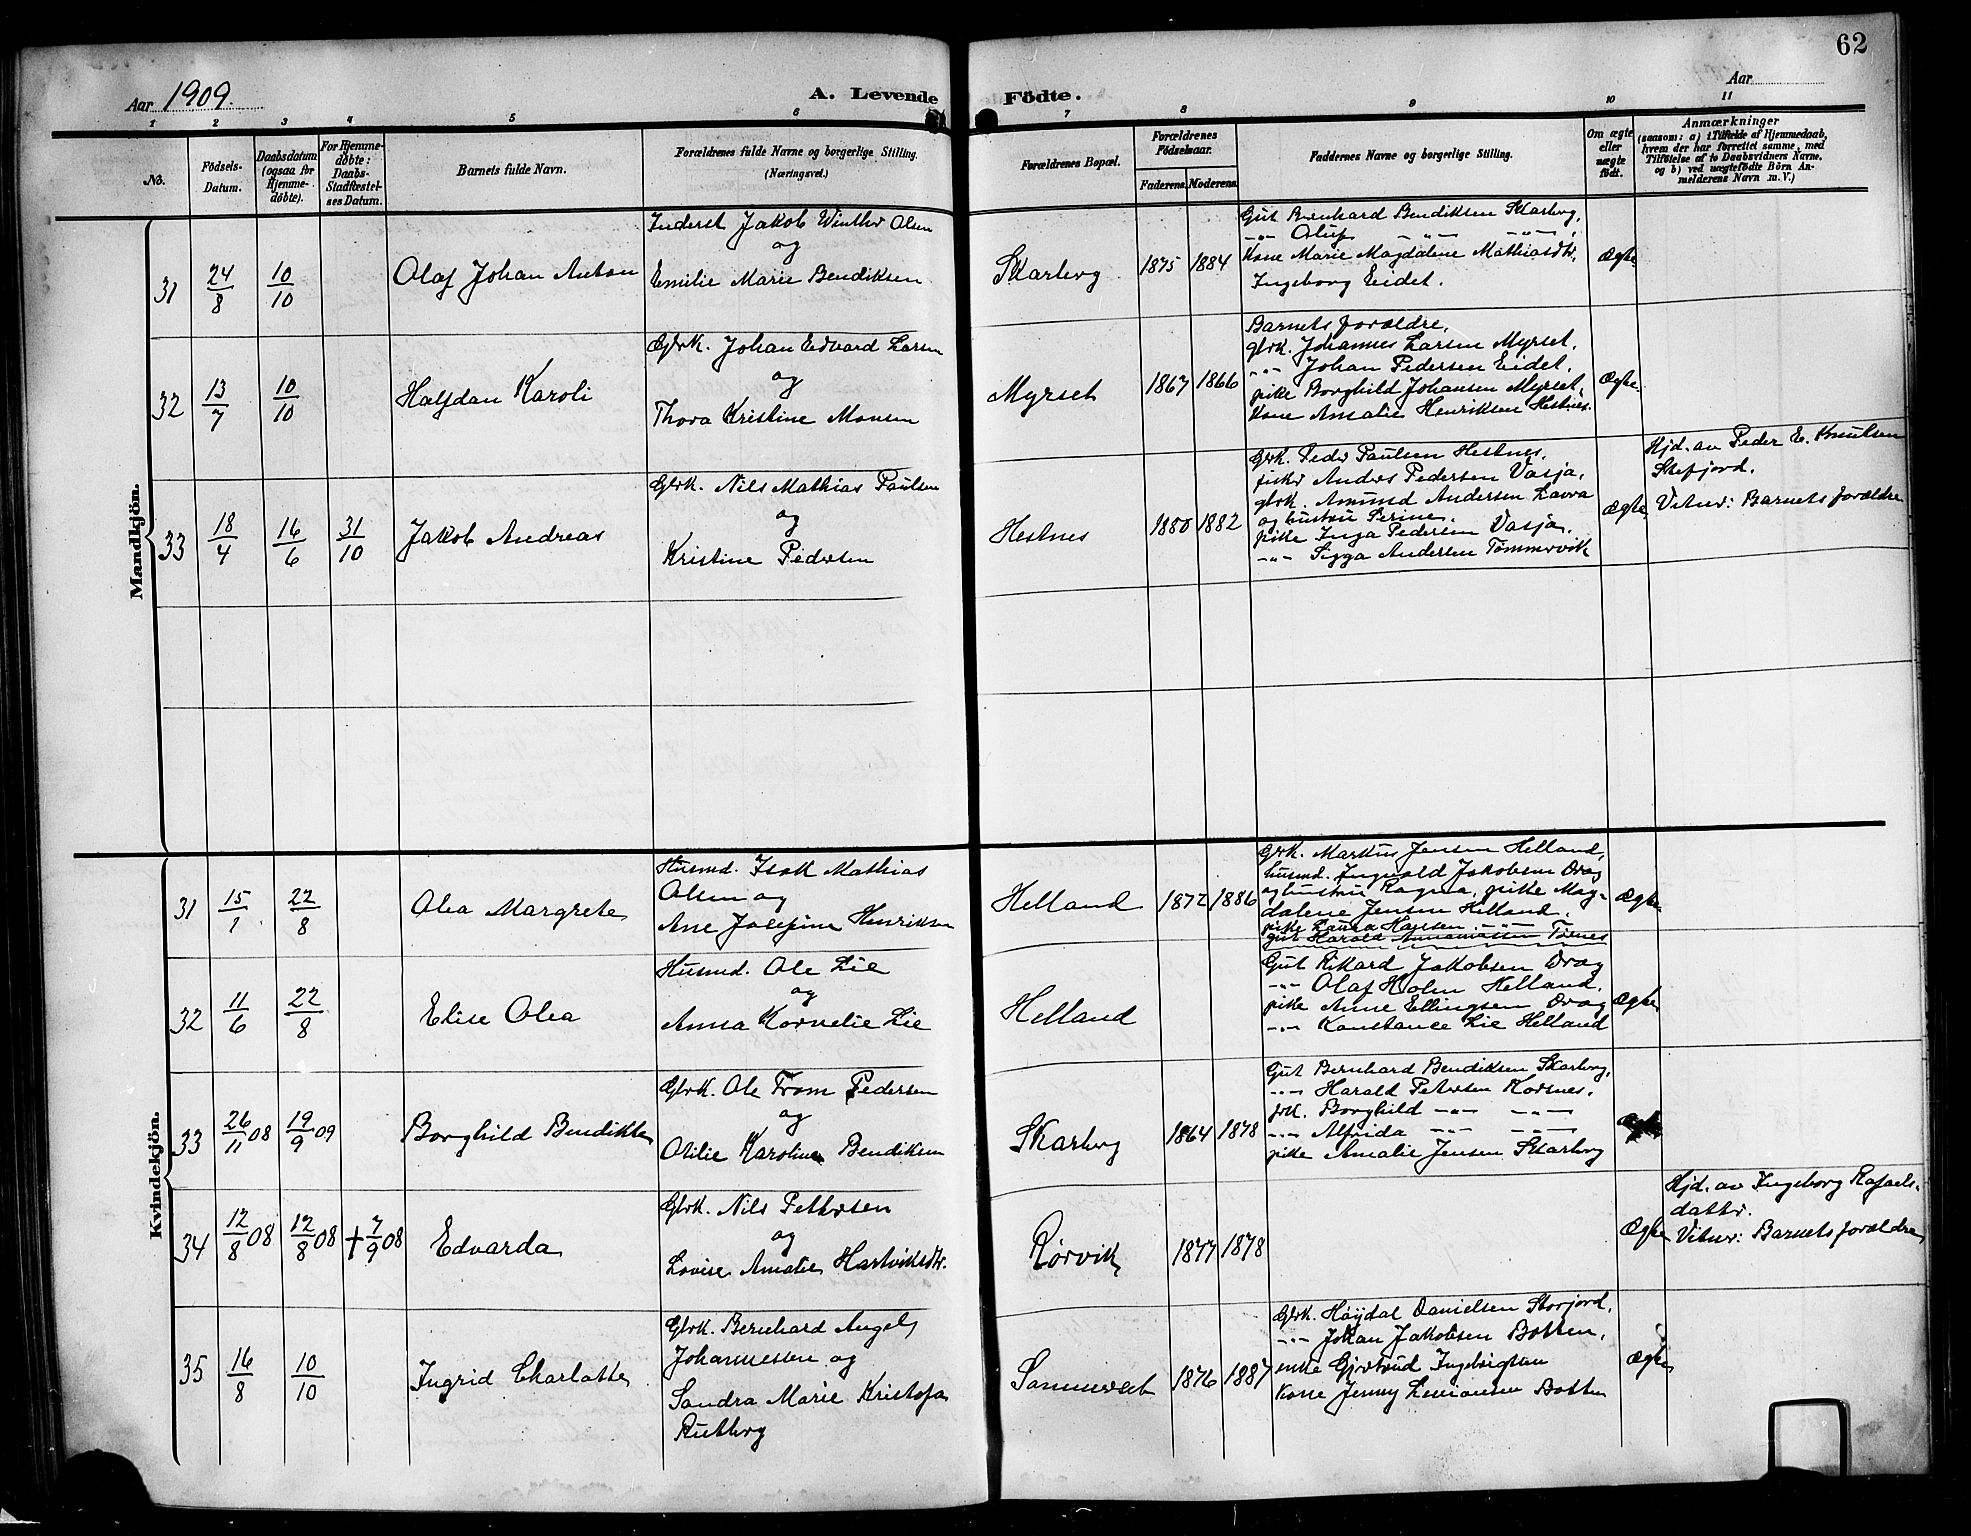 62
Aar 1909.
A. Levende Födte.
Aar
1 2 3 4 5 6 7 8 9 10 11
No.
Födsels-Datum.
Daabsdatum (ogsaa for Hjemme-döbte).
For Hjemme-döbte: Daabs-Stadfæstel-ses Datum.
Barnets fulde Navn.
Forældrenes fulde Navne og borgerlige Stilling. (Næringsvei.)
Forældrenes Bopæl.
Forældrenes Födselsaar.
Faderens. Moderens.
Faddernes Navne og borgerlige Stilling.
Om ægte eller uægte födt.
Anmærkninger
(saasom: a) i Tilfælde af Hjemmedaab, hvem der har forrettet samme, med Tilföielse af to Daabsvidners Navne, og b) ved uægtefödte Börn An-melderens Navn m. V.)
Mandkjön.
31 24/8 10/10 Olaf Johan Anton
Inderst Jakob Winther Olsen
og
Emilie Marie Bendiksen
Skarberg 1875 1884
Gut Bernhard Bendiksen Skarberg,
-"- Oluf -"- -"-,
Kone Marie Magdalene Mathiasdtr,
Ingeborg Eidet.
Ægte
32 13/7 10/10 Halfdan Karoli
Gbrk. Johan Edvard Larsen
og
Thora Kristine Monsen
Myrset 1867 1866
Barnets forældre,
gbrk. Johannes Larsen Myrset,
-"- Johan Pedersen Eidet,
pike Borghild Johansen Myrset,
Kone Amalie Henriksen Hestnes.
Ægte
33 18/4 16/6 31/10 Jakob Andreas
Gbrk. Nils Mathias Paulsen
og
Kristine Pedersen
Hestnes 1880 1882
Gbrk. Peder Paulsen Hestnes,
fisker Anders Pedersen Vasja,
gbrk. Amund Andersen Lavra
og hustru Perine.
pike Inga Pedersen Vasja.
-"- Sigga Andersen Tømmervik
Ægte
Hjd. av Peder E. Knutsen
Stefjord.
Vitner: Barnets forældre
Kvindekjön.
31 15/1 22/8 Olea Margrete
Husmd. Isak Mathias
Olsen og
Ane Josefine Henriksen
Helland 1872 1886
Gbrk. Markus Jensen Helland,
husmd. Ingvald Jakobsen Drag
og hustru Ragna, pike Mag-
dalene Jensen Helland.
pike Laura Hansen -"-
gut Harald Tørnes
Ægte
32 11/6 22/8 Elise Olea
Husmd. Ole Lie
og
Anna Kornelie Lie
Helland
Gut Rikard Jakobsen Drag
-"- Olaf Holm Helland.
pike Anne Ellingsen Drag
-"- Konstance Lie Helland
Ægte
33 26/11 08 19/9 09 Borghild Bendikte
Gbrk. Ole From Pedersen
og
Otilie Karoline Bendiksen
Skarberg 1864 1878
Gut Bernhard Bendiksen Skarberg,
-"- Harald Petersen Korsnes.
frk. Borghild -"- -"-
-"- Alfrida -"- -"-
pike Amalie Jensen Skarberg
Ægte
34 12/8 08 12/8 08 † 7/9 08 Edvarda
Gbrk. Nils Pettersen
og
Lovise Amalie Hartviksdtr.
Rørvik 1877 1878
Ægte
Hjd. av Ingeborg Rafaels-
datter.
Vitner: Barnets forældre
35 16/8 10/10 Ingrid Charlotte
Gbrk. Bernhard Angel
Johannessen og
Sandra Marie Kristofa
Rutberg
Sommerset 1876 1887
Gbrk. Høydal Danielsen Storjord,
-"- Johan Jakobsen Botten,
enke Gjertrud Ingebrigtsen
Kone Jenny Simonsen Botten
Ægte